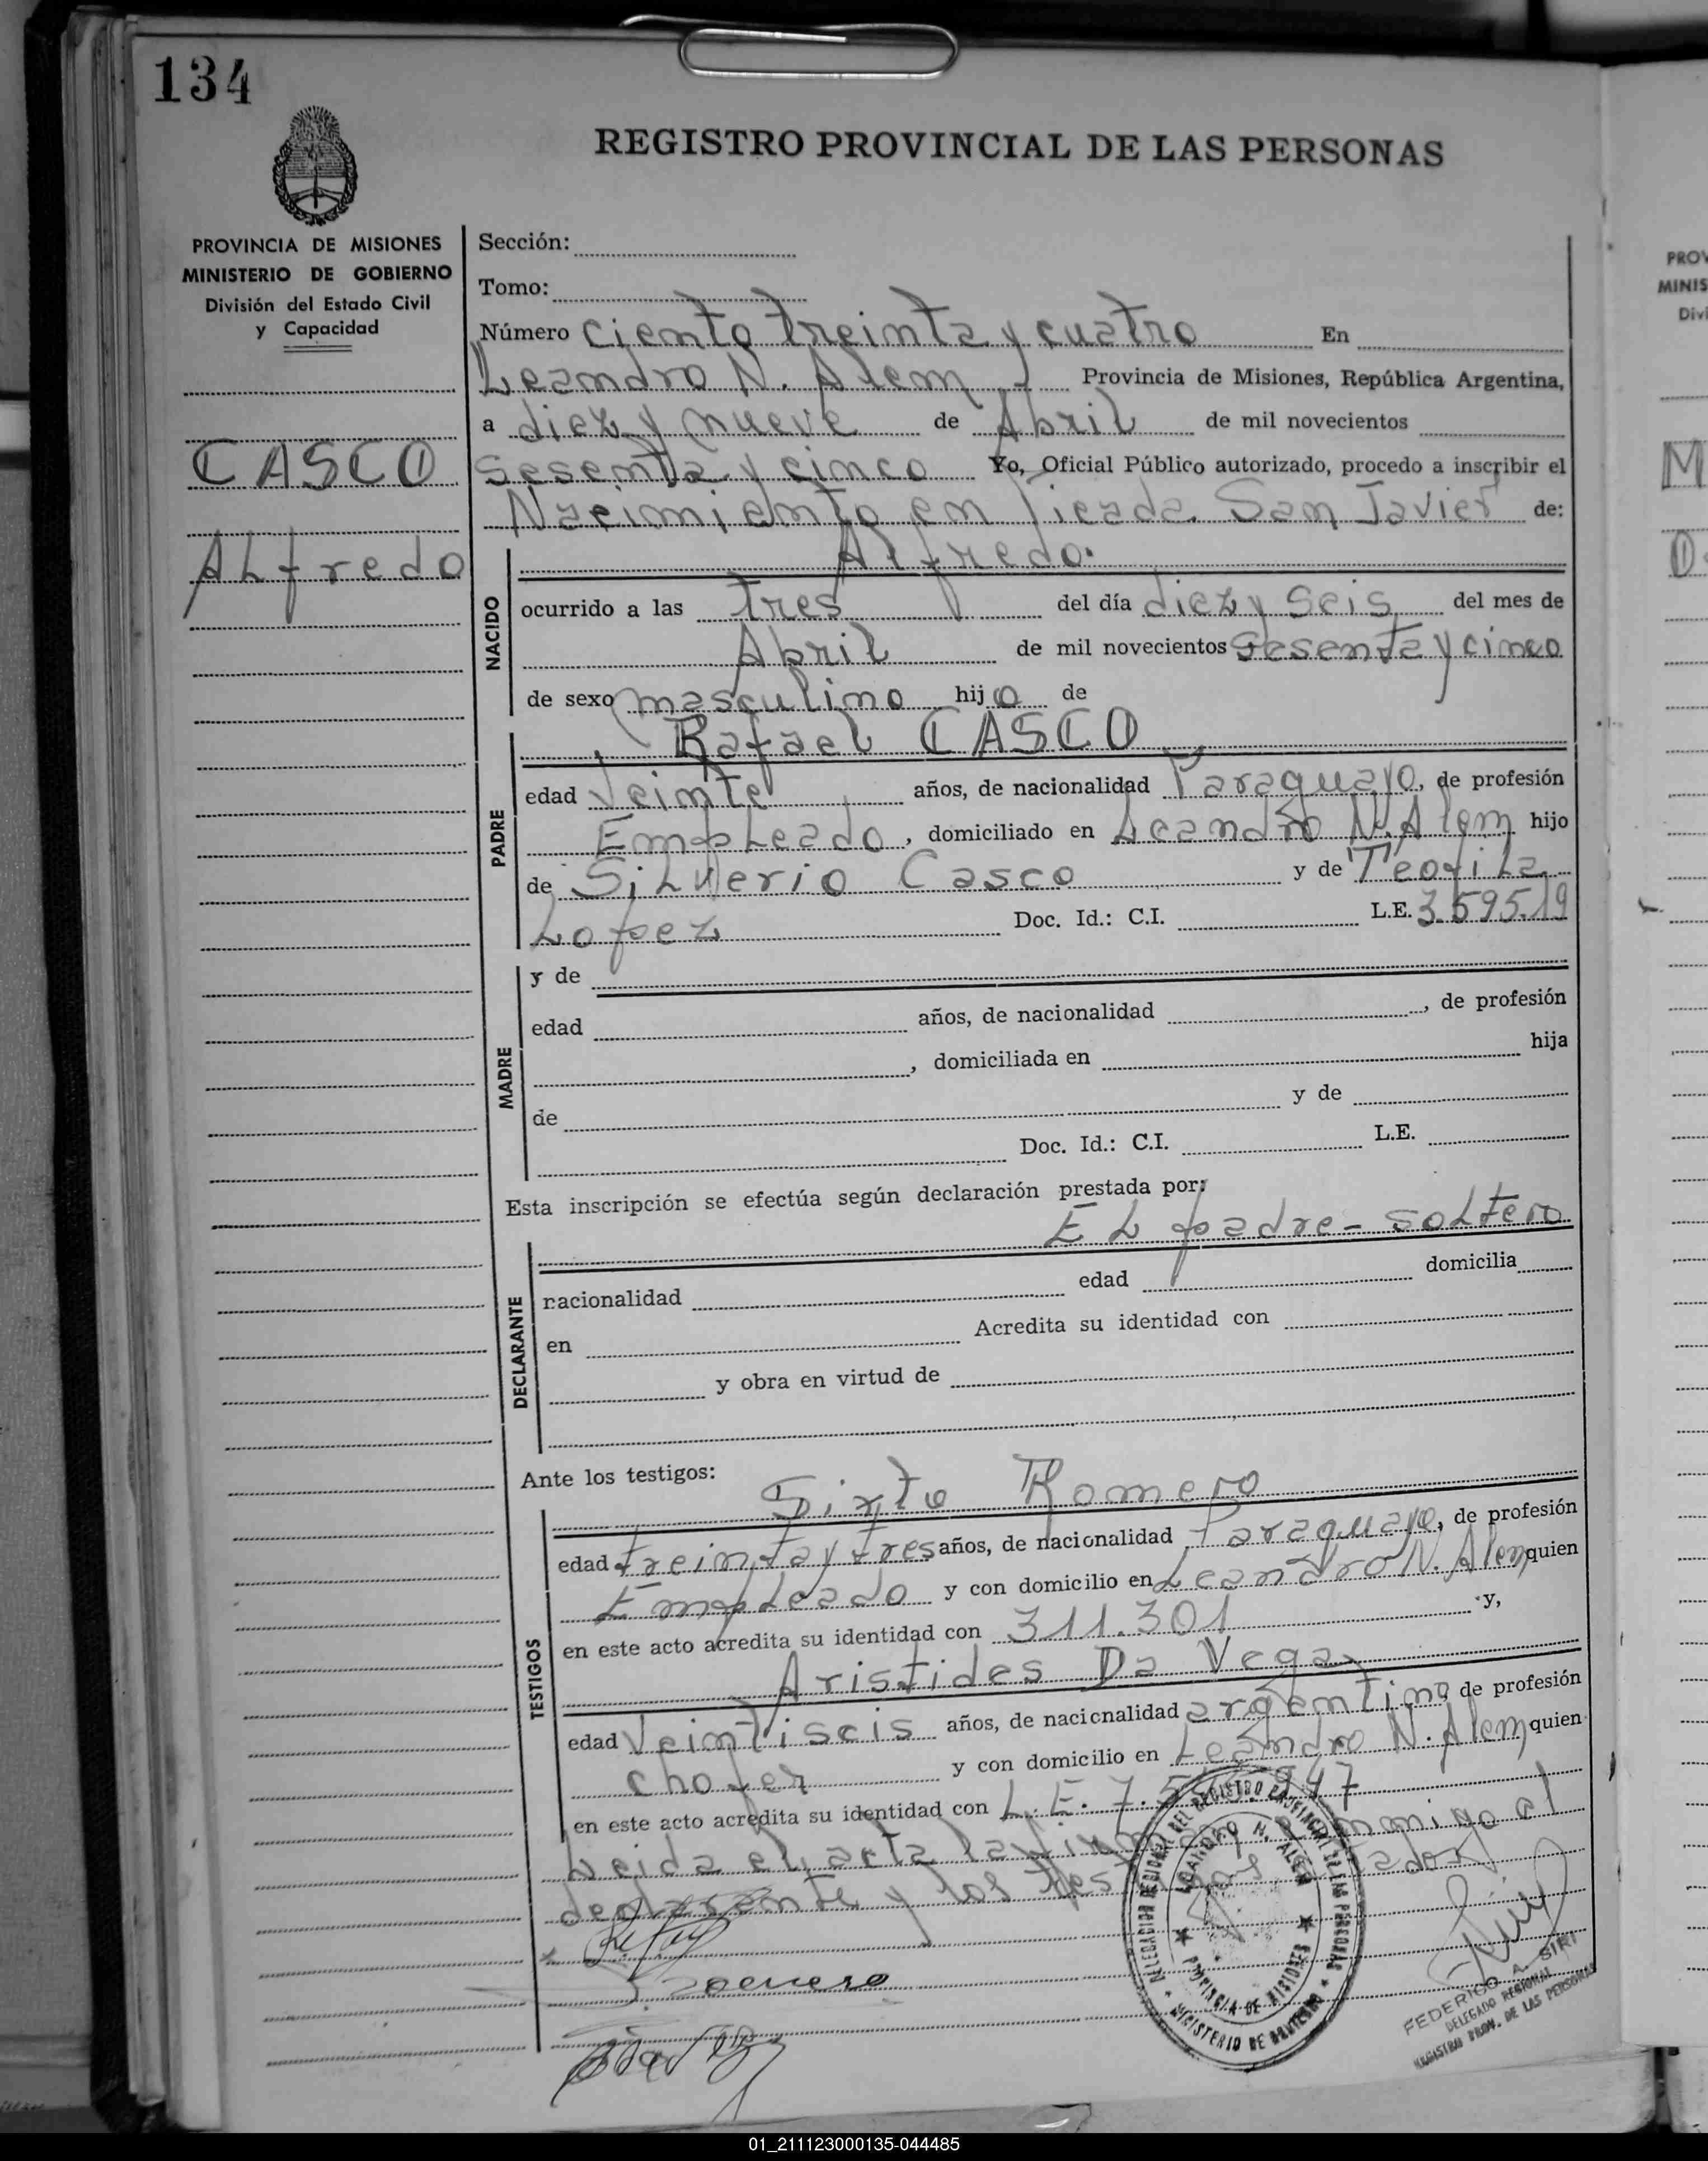 134
REGISTRO PROVINCIAL DE LAS PERSONAS
PROVINCIA DE MISIONES
MINISTERIO DE GOBIERNO
División del Estado Civil
y Capacidad
CASCO
Alfredo
Sección:
Tomo:
Número ciento treinta y cuatro En
Leandro N. Alem Provincia de Misiones, República Argentina,
a diez y nueve de Abril de mil novecientos
sesenta y cinco Yo, Oficial Público autorizado, procedo a inscribir el
Nacimiento en Picada San Javier de:
NACIDO
Alfredo.
ocurrido a las tres del día diez y seis del mes de
Abril de mil novecientos sesenta y cinco
de sexo masculino hijo de
PADRE
Rafael CASCO
edad veinte años, de nacionalidad Paraguayo, de profesión
Empleado, domiciliado en Leandro N. Alem hijo
de Silverio Casco y de Teofila
Lopez Doc. Id.: C.I. L.E. 3.595.19
MADRE
y de
edad años, de nacionalidad , de profesión
, domiciliada en hija
de y de
Doc. Id.: C.I. L.E.
Esta inscripción se efectúa según declaración prestada por:
DECLARANTE
El padre - soltero
nacionalidad edad domicilia
en Acredita su identidad con
y obra en virtud de
Ante los testigos:
TESTIGOS
Sixto Romero
edad treinta y tres años, de nacionalidad Paraguayo, de profesión
Empleado y con domicilio en Leandro N. Alem quien
en este acto acredita su identidad con 311.301 y,
Aristides Da Vega
edad Veintiseis años, de nacionalidad argentino de profesión
chofer y con domicilio en Leandro N. Alem quien
en este acto acredita su identidad con L.E. 7.5 947
Leida el acta la firman conmigo el
declarante y los testigos
S. Romero
DELEGACION REGIONAL DEL REGISTRO PROVINCIAL DE LAS PERSONAS
LEANDRO N. ALEM
PROVINCIA DE MISIONES
MINISTERIO DE GOBIERNO
FEDERICO A. SIRI
DELEGADO REGIONAL
REGISTRO PROV. DE LAS PERSONAS
PROV
MINIS
Divi
01_211123000135-044485